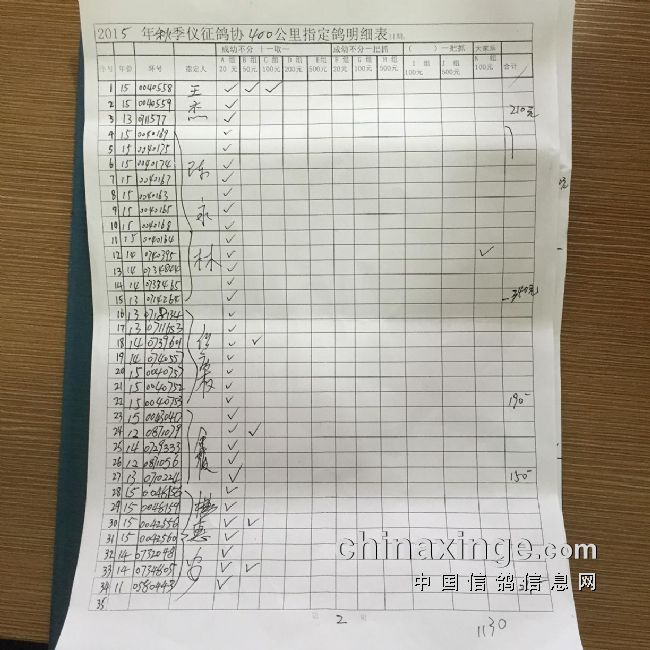 2015 年秋季仪征鸽协400公里指定鸽明细表
成功不分 十一取一 成功不分一把抓 ( )一把抓 大家乐
序号 年份 环号 指定人 A 组 20 元 B 组 50元 C 组 100元 D 组 200元 E 组 500元 F 组 20元 G 组 100元 H 组 500元 I 组 100元 J 组 500元 K 组 100元 合计
1 15 0040558 王 ✓ ✓ ✓
2 15 0040559 杰 ✓
3 13 0711577 ✓ 210元
4 15 0040169 ✓
5 15 0040175 ✓
6 15 0040174 陈 ✓
7 15 0040167 ✓
8 15 0040163 ✓
9 15 0040165 永 ✓
10 15 0040168 ✓
11 15 0040164 ✓
12 14 0740395 林 ✓ ✓
13 14 ✓
14 14 0739465 ✓
15 13 0714264 ✓
16 13 0718134 ✓
17 13 0711153 ✓
18 14 0739601 ✓ ✓
19 14 074055 ✓
20 15 0040757 ✓
21 15 0040752 ✓
22 15 0040753 ✓ 190
23 15 0043047 ✓
24 12 0871079 ✓ ✓
25 14 0729333 ✓
26 12 0871056 ✓
27 13 0710224 ✓ 150
28 15 0046156 ✓
29 15 0046159 ✓
30 15 0042556 ✓ ✓
31 15 0042560 惠 ✓
32 14 0732048 ✓
33 14 0734605 ✓ ✓
34 11 0580443 ✓
35
第 2 页
1130
chinaxinge.com
中国信鸽信息网